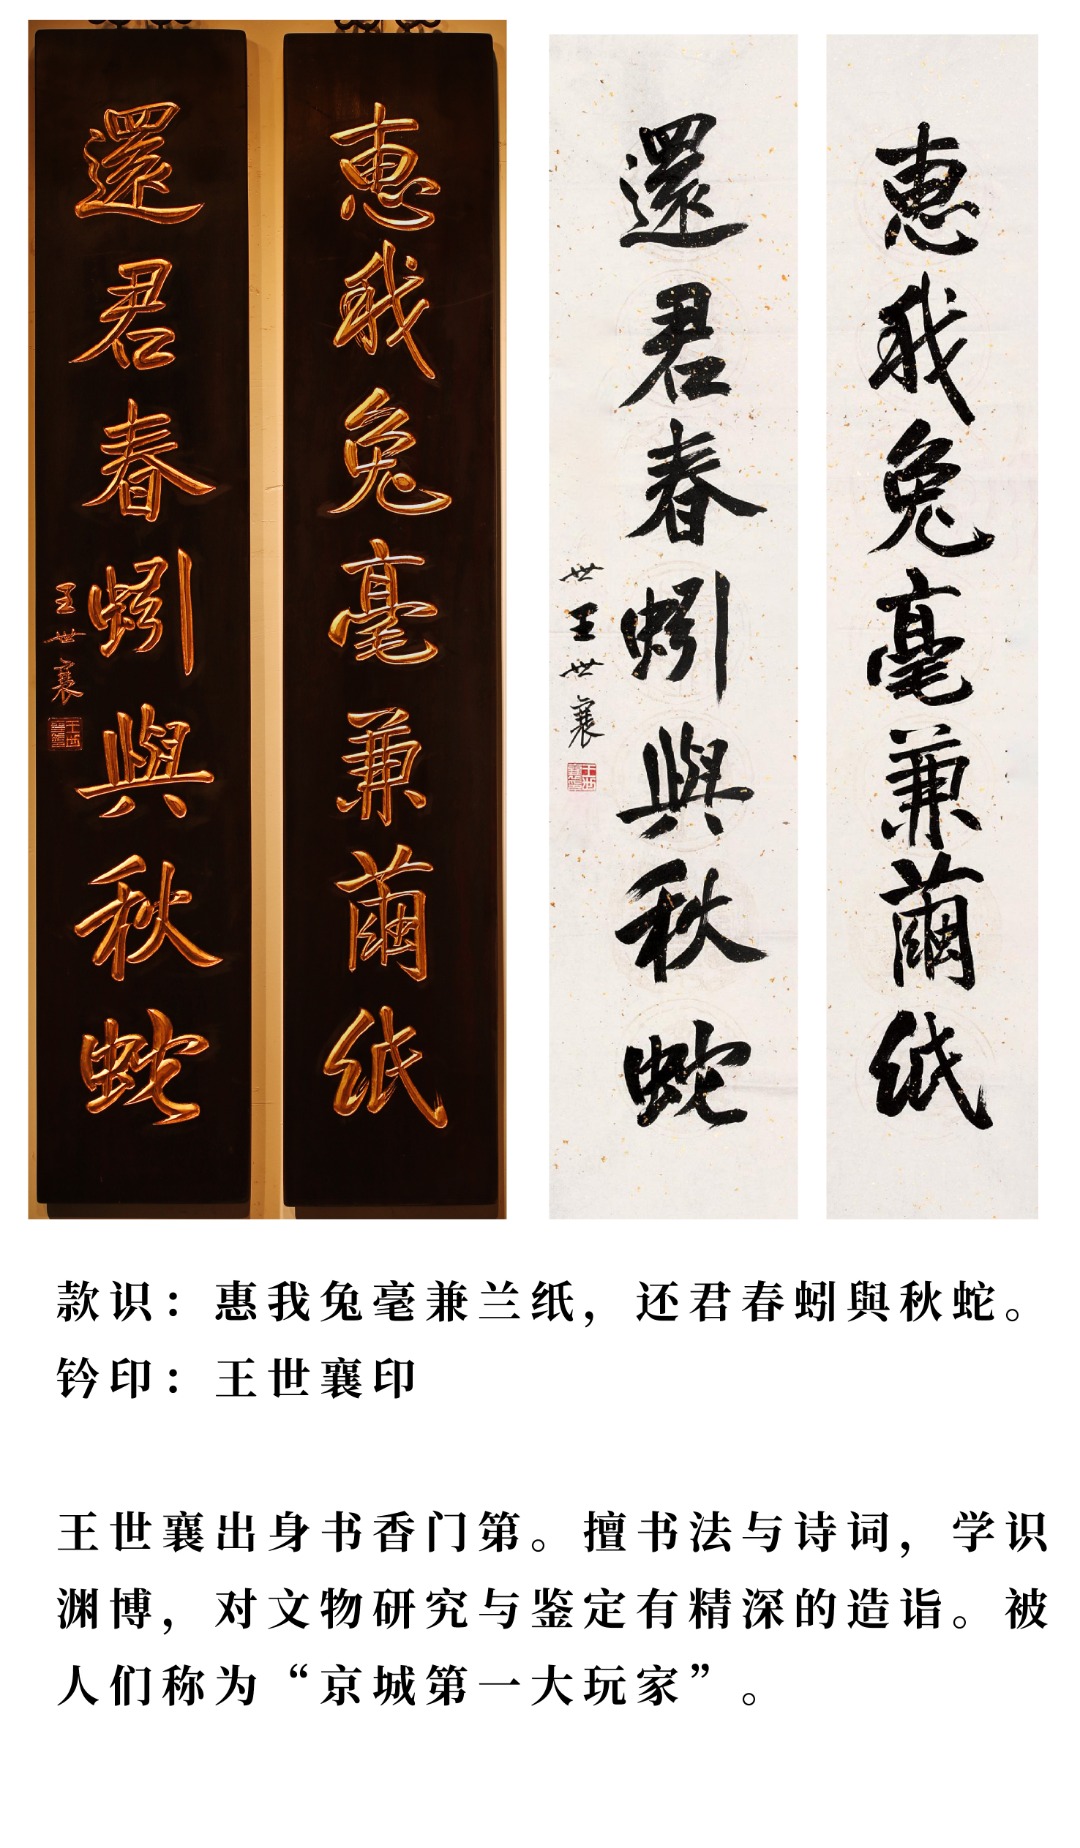 惠我兔毫兼繭紙
還君春蚓與秋蛇
王世襄
惠我兔毫兼繭紙
還君春蚓與秋蛇
世王世襄
款识：惠我兔毫兼兰纸，还君春蚓與秋蛇。
钤印：王世襄印
王世襄出身书香门第。擅书法与诗词，学识
渊博，对文物研究与鉴定有精深的造诣。被
人们称为“京城第一大玩家”。